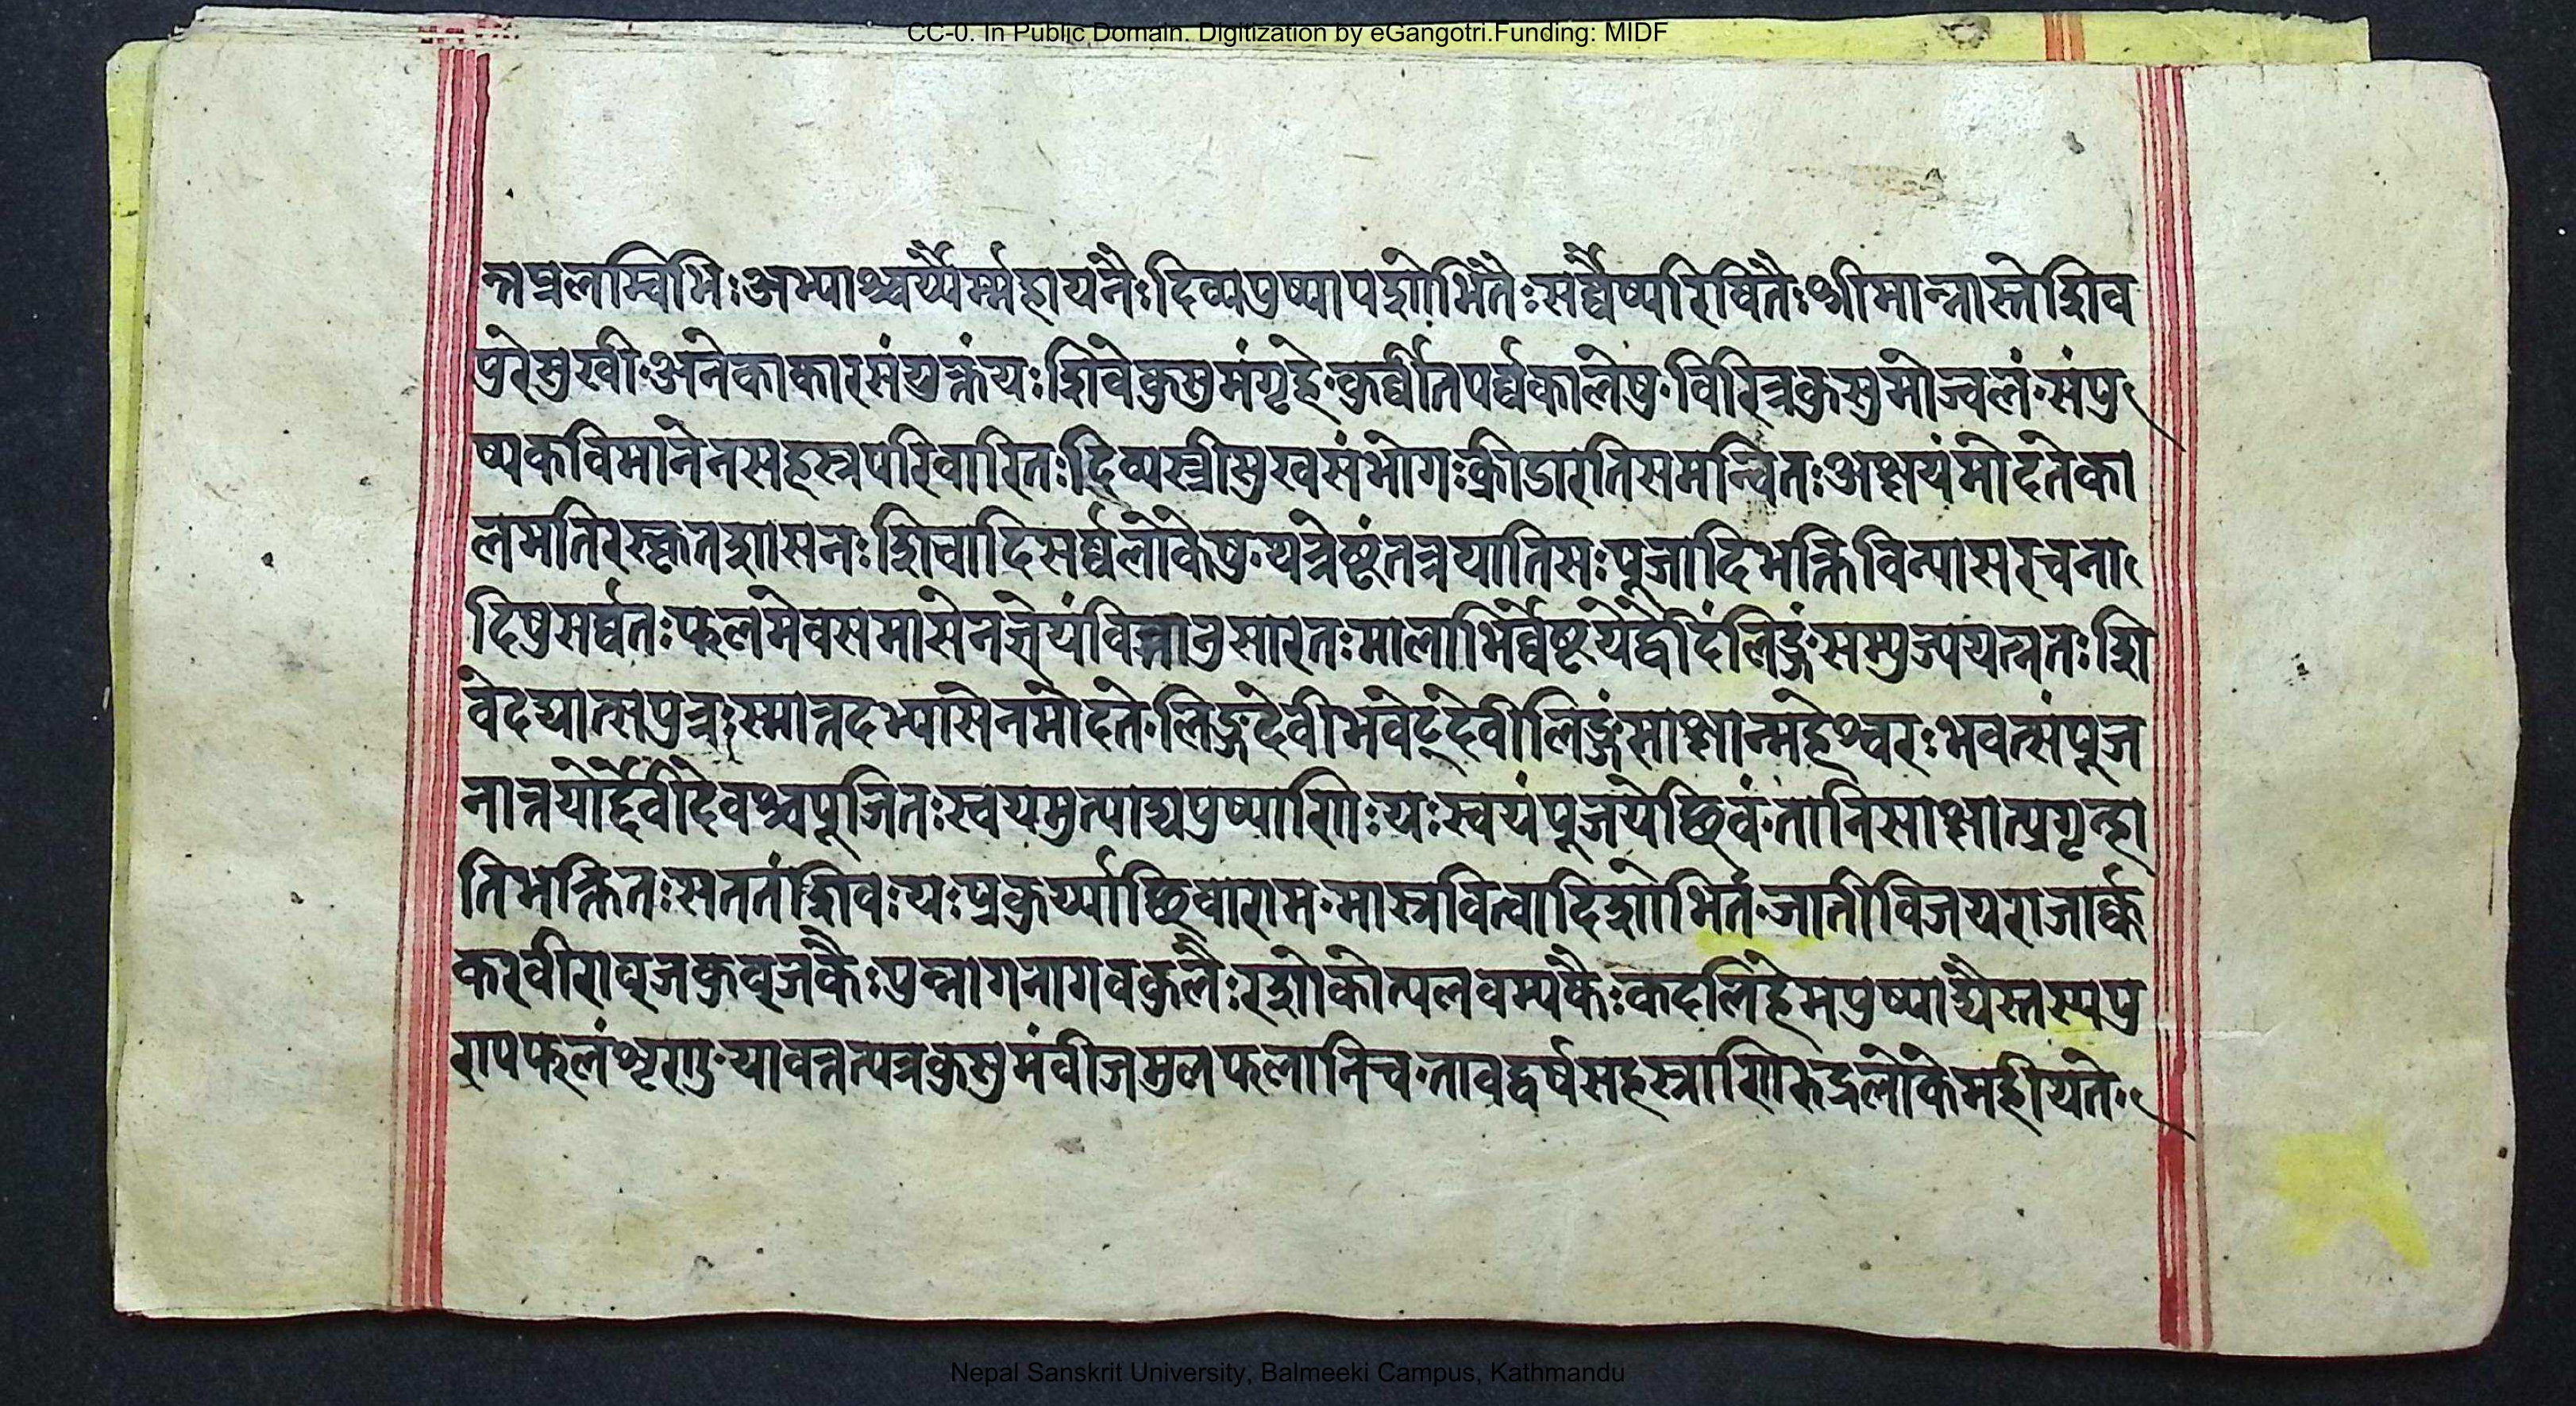 CC-0. In Public Domain. Digitization by eGangotri.Funding: MIDF
न्तप्रलम्बिभिः अम्पाश्चर्य्यैर्म्महायनैः दिव्यपुष्पापशोभितैः सर्व्वैष्परिषितैः श्रीमान्नास्ते शिव
पुरे सुखी॰ अनेकाकारसंयुक्तं यः शिवे कुसुमं गृहे॰ कुर्व्वीत पर्व्वकालेषु॰ विचित्रकुसुमोज्वलं॰ सं पु
ष्पकविमानेन सहस्रपरिवारितः दिव्यस्त्रीसुखसंभोगः क्रीडारतिसमन्वितः अक्षयं मोदते का
लमतिरस्कृतशासनः शिवादिसर्व्वलोकेषु॰ यत्रेष्टं तत्र याति सः पूजादिभक्तिविन्यासरचना
दिषु सर्व्वतः फलमेव समासेन ज्ञेयं वित्तानुसारतः मालाभिर्व्वेष्टयेद्वेदिं लिङ्गं सम्पुज्य यत्नतः शि
वे दद्यात्स पुत्रः स्मान्नदभ्यासेन मोदते॰ लिङ्गदेवी भवेद्देवी लिङ्गं साक्षान्महेश्वरः भवत्संपूज
नान्नयोर्द्देवी देवश्च पूजितः स्वयमुत्पाद्य पुष्पाणिः यः स्वयं पूजयेच्छिवं॰ तानि साक्षात्प्रगृन्हा
ति भक्तितः सततं शिवः यः प्रकुर्य्याच्छिवाराम॰ मास्रवित्वादिशोभितं॰ जातीविजयराजार्क्क
करवीराव्जकुव्जकैः पुन्नागनागवकुलैः रशोकोत्पलचम्पकैः कदलिहेमपुष्पाद्यैस्तस्य पु
राप फलं शृणु॰ यावत्तत्पत्रकुसुमं वीजमुलफलानि च॰ तावद्वर्षसहस्त्राणि रुद्रलोके महीयते॰
Nepal Sanskrit University, Balmeeki Campus, Kathmandu